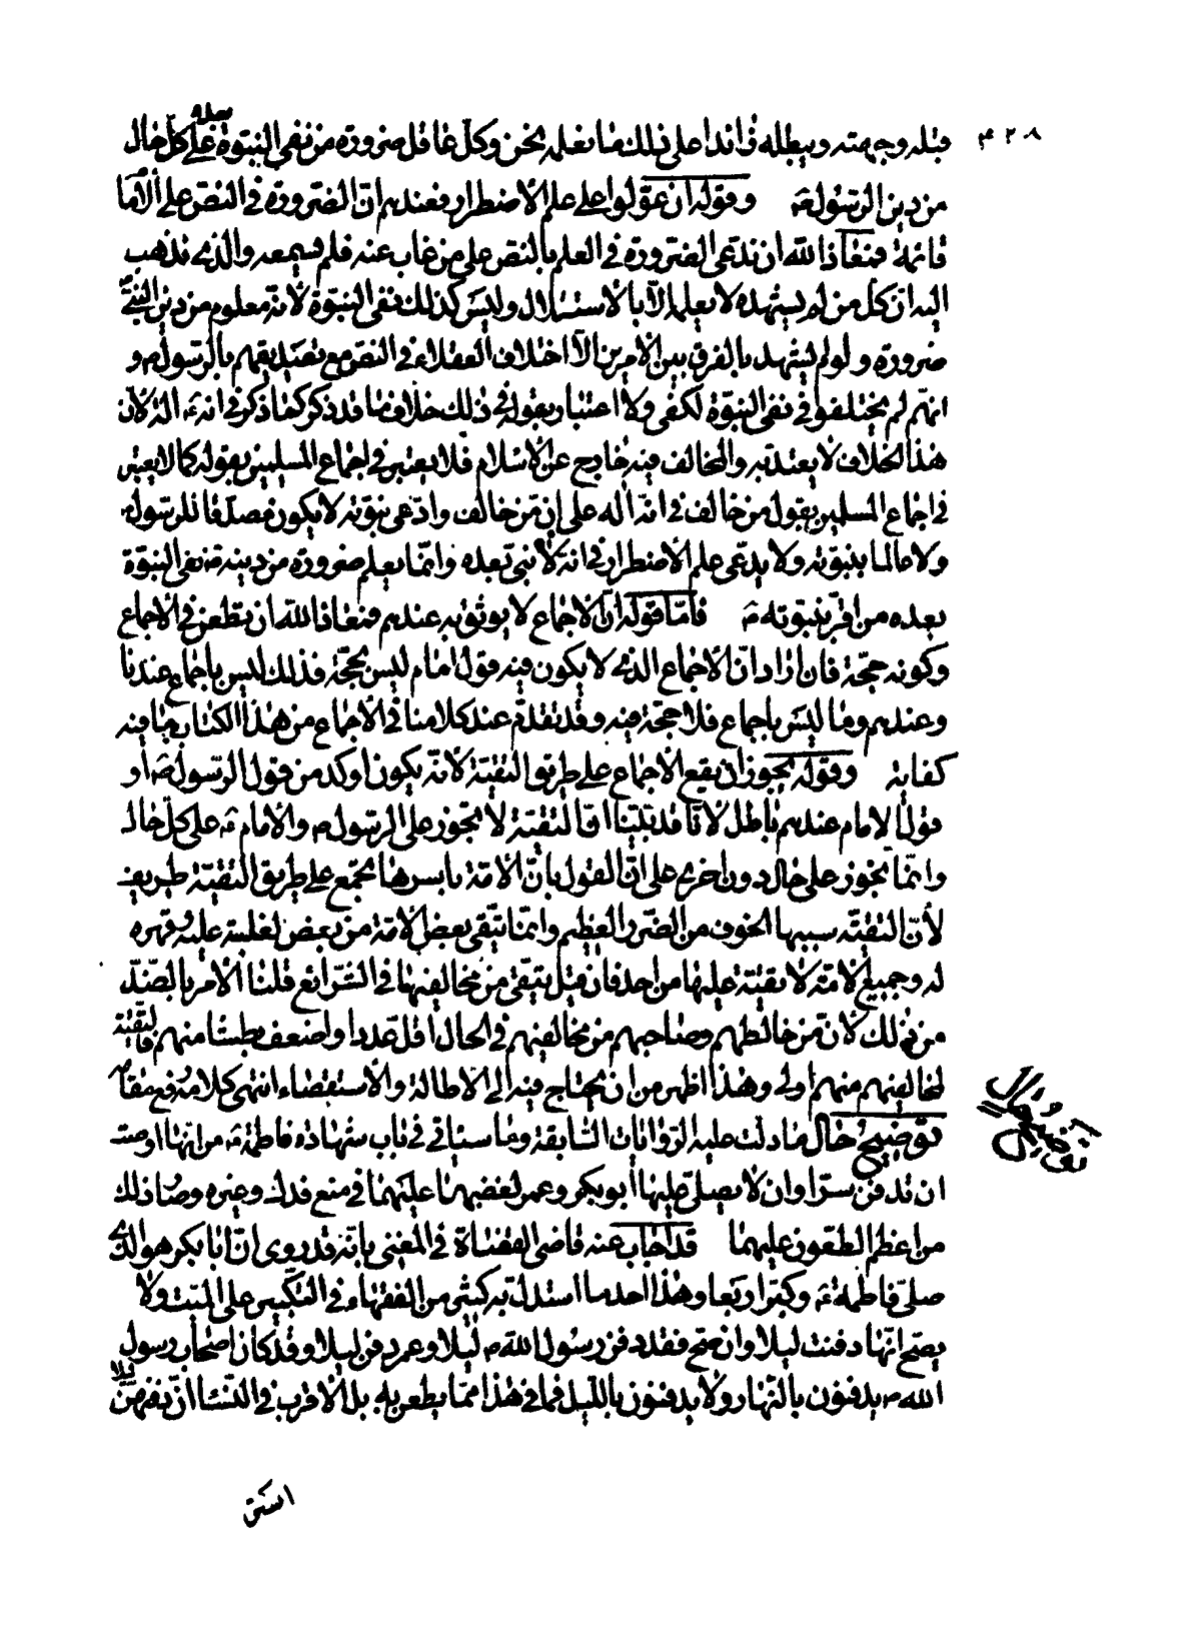 ٤٢٠٨
قبله وجهته ويبطله زائدا على ذلك ما نعلمه نحن وكل عاقل ضرورة من نفى النبوة بعده على كل حال
من دين الرسول ص وقوله ان عولوا على علم الاضطرار فعندهم ان الضرورة في النص على الاما
قائمة فمعاذ الله ان ندعى الضرورة في العلم بالنص على من غاب عنه فلم يسمعه والذى نذهب
اليه ان كل من لم يشهده لا يعلمه الا بالاستدلال وليس كذلك نفى النبوة لانه معلوم من دين النبي
ضرورة ولو لم يشهد بالفرق بين الامرين الا اختلاف العقلاء في النص مع تصديقهم بالرسول ص و
انهم لم يختلفوا في نفى النبوة لكفى ولا اعتبار بقوله في ذلك خلاف ما قد ذكر كما ذكر في انه ع اله لان
هذا الخلاف لا يعتد به والمخالف فيه خارج عن الاسلام فلا يعتبر في اجماع المسلمين بقوله كما لا يعتبر
في اجماع المسلمين بقول من خالف في انه اله على ان من خالف وادعى نبوته لا يكون مصدقا للرسول ص
ولا عالما بنبوته ولا يدعى علم الاضطرار في انه لا نبى بعده وانما يعلم ضرورة من دينه ص نفى النبوة
بعده من اقر بنبوته ص فاما قوله ان الاجماع لا يوثق به عندهم فمعاذ الله ان نطعن في الاجماع
وكونه حجة فان اراد ان الاجماع الذى لا يكون فيه قول امام ليس بحجة فذلك ليس باجماع عندنا
وعندهم وما ليس باجماع فلا حجة فيه وقد تقدم عند كلامنا في الاجماع من هذا الكتاب ما فيه
كفاية وقوله يجوز ان يقع الاجماع على طريق التقية لانه يكون اوكد من قول الرسول ص او
قول الامام عندهم باطل لانا قد بينا ان التقية لا تجوز على الرسول ص والامام ع على كل حال
وانما تجوز على حال دون اخرى على ان القول بان الامة باسرها تجمع على طريق التقية طريف
لأن التقية سببها الخوف من الضرر العظيم وانما يتقى بعض الامة من بعض لغلبته عليه وقهره
له وجميع الامة لا تقية عليها من احد فان قيل يتقى من مخالفيها في الشرائع قلنا الامر بالضد
من ذلك لان من خالطهم وصاحبهم من مخالفيهم في الحال اقل عددا واضعف بطشا منهم فالتقية
لمخالفيهم منهم اولى وهذا اظهر من ان يحتاج فيه الى الاطالة والاستقصاء انتهى كلامه رفع مقامه
توضيح حال ما دلت عليه الروايات السابقة وما سيأتى في باب شهادة فاطمة ع من انها اوصت
ان تدفن سرا وان لا يصلى عليها ابو بكر وعمر لغضبها عليهما في منع فدك وغيره وصار ذلك
من اعظم الطعون عليهما قد اجاب عنه قاضى القضاة في المغنى بانه قد روى ان ابا بكر هو الذى
صلى فاطمة ع وكبر اربعا وهذا احد ما استدل به كثير من الفقهاء في التكبير على الميت ولا
يصح انها دفنت ليلا وان صح فقد دفن رسول الله ص ليلا وعمر دفن ليلا وقد كان اصحاب رسول
الله ص يدفنون بالنهار ولا يدفنون بالليل فما في هذا مما يطعن به بل الاقرب في النساء ان دفنهن ليلا
استر